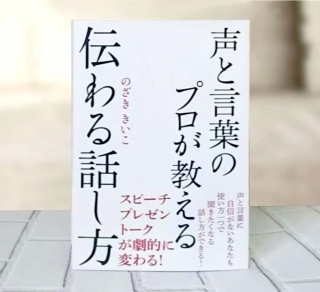 声と言葉の
プロが教える
伝わる話し方
のざききいこ
声と言葉に
自信がないあなたも
使い方一つで
聞きたくなる
話し方ができる！
スピーチ
プレゼン
トーク
が劇的に
変わる！